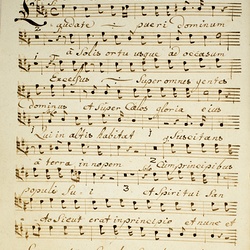 Laudate pueri Dominum
à Solis ortu usque ad occasum
Excelsus Super omnes gentes
Dominus et Super Cælos gloria eius
Qui in altis habitat Suscitans
à terra inopem 2 Cum principibus
populi Su i 3 et Spiritui San
cto Sicut erat in principio et nunc et